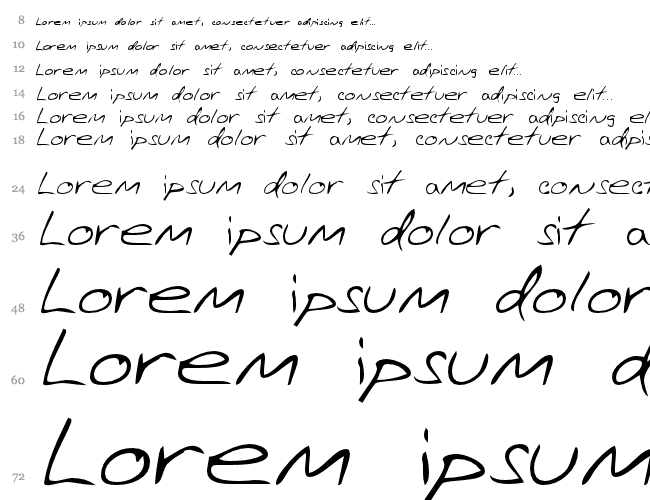 8 Lorem ipsum dolor sit amet, consectetuer adipiscing elit...
10 Lorem ipsum dolor sit amet, consectetuer adipiscing elit...
12 Lorem ipsum dolor sit amet, consectetuer adipiscing elit...
14 Lorem ipsum dolor sit amet, consectetuer adipiscing elit...
16 Lorem ipsum dolor sit amet, consectetuer adipiscing el
18 Lorem ipsum dolor sit amet, consectetuer adipis
24 Lorem ipsum dolor sit amet, consect
36 Lorem ipsum dolor sit a
48 Lorem ipsum dolor
60 Lorem ipsum d
72 Lorem ipsum